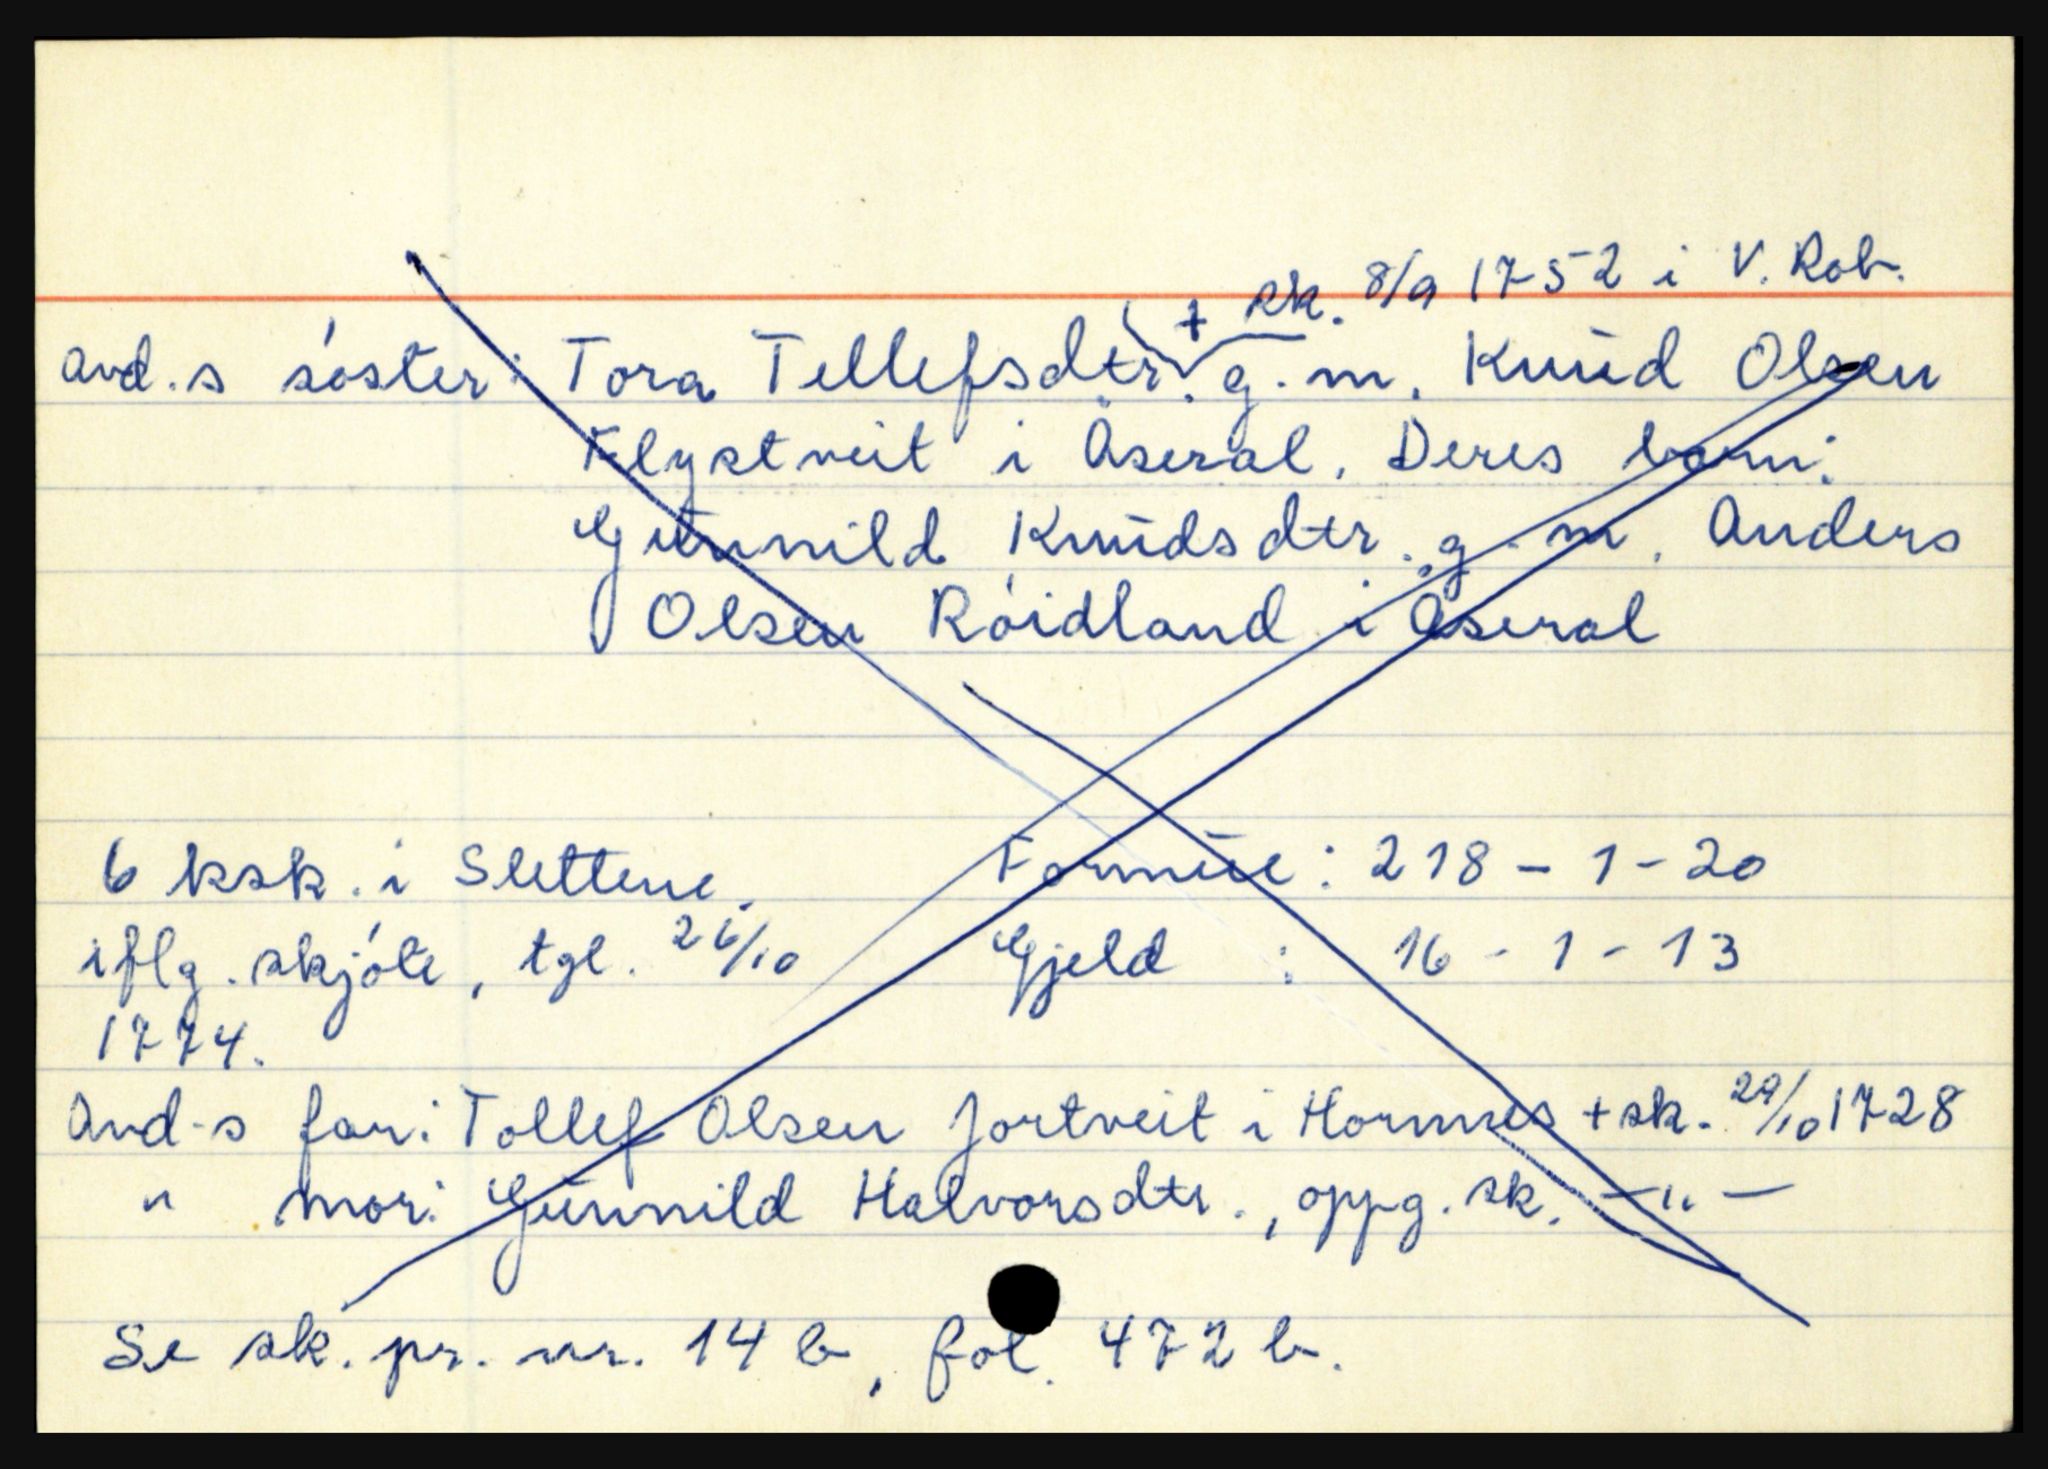 + sk. 8/9 1752 i V. Rob.
Avd.s söster: Tora Tellefsdtr. g. m. Knud Olsen
Flystveit i Åseral. Deres barn:
Gunnild Knudsdtr. g. m. Anders
Olsen Röidland i Åseral
6 ksk. i Slettene Formue: 218 - 1 - 20
iflg. skjöte, tgl. 26/10 Gjeld : 16 - 1 - 13
1774.
Avd-s far: Tollef Olsen Jortveit i Hornnes + sk. 29/10 1728
" mor: Gunnild Halvorsdtr., oppg. sk. — " —
Se sk. pr. nr. 14 b, fol. 472 b.